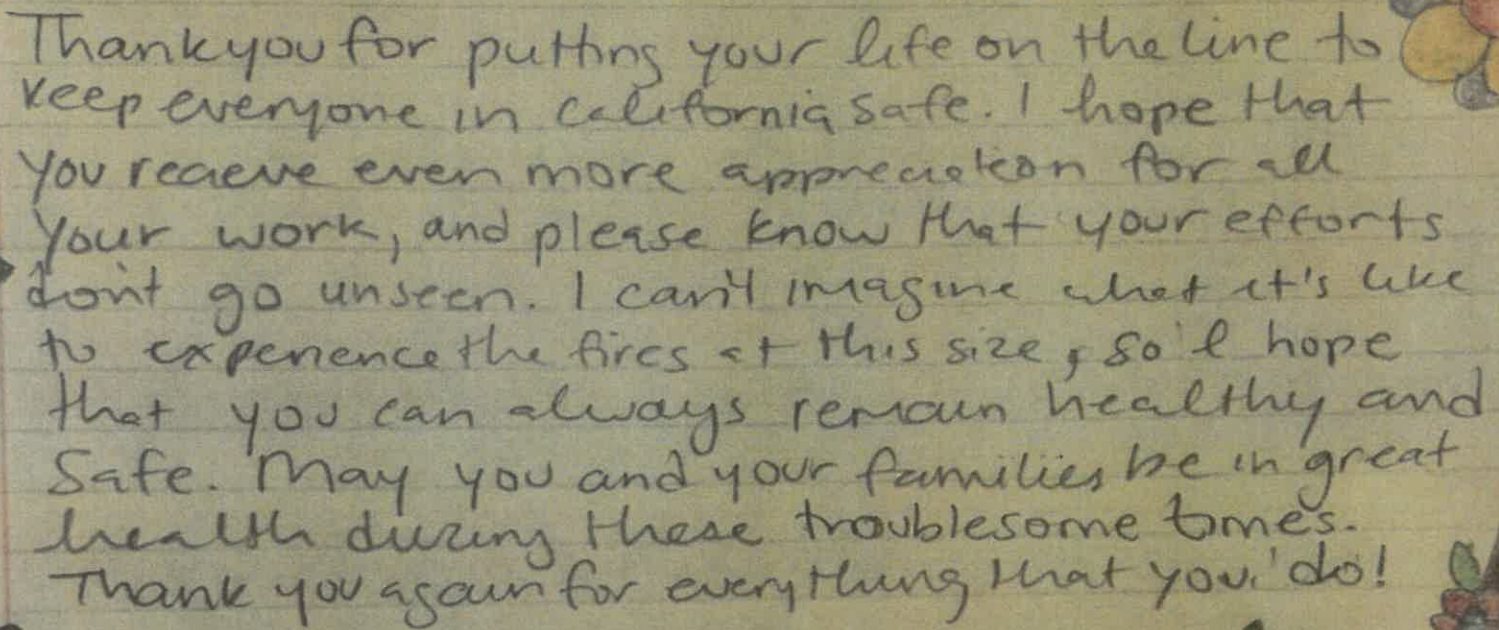 Thank you for putting your life on the line to
keep everyone in California safe. I hope that
you recieve even more appreciation for all
your work, and please know that your efforts
don't go unseen. I can't imagine what it's like
to experience the fires at this size, so I hope
that you can always remain healthy and
safe. May you and your families be in great
health during these troublesome times.
Thank you again for everything that you do!